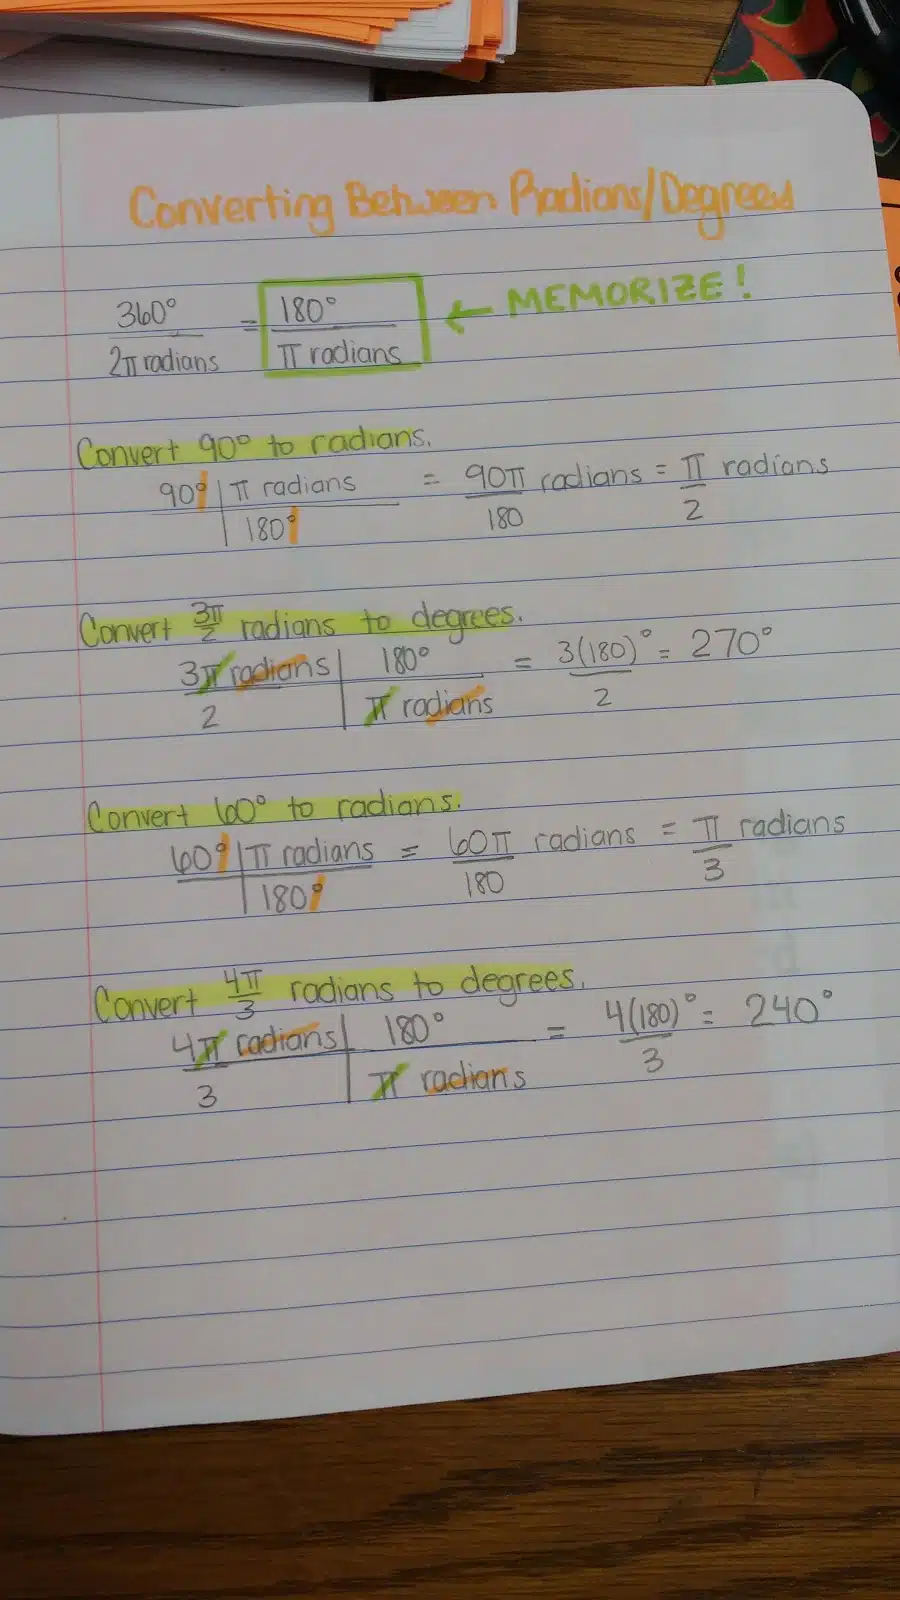 Converting Between Radians/Degrees
360° / 2π radians = 180° / π radians ← MEMORIZE!
Convert 90° to radians.
90° | π radians / 180° = 90π / 180 radians = π / 2 radians
Convert 3π/2 radians to degrees.
3π radians / 2 | 180° / π radians = 3(180)° / 2 = 270°
Convert 60° to radians.
60° | π radians / 180° = 60π / 180 radians = π / 3 radians
Convert 4π/3 radians to degrees.
4π radians / 3 | 180° / π radians = 4(180)° / 3 = 240°